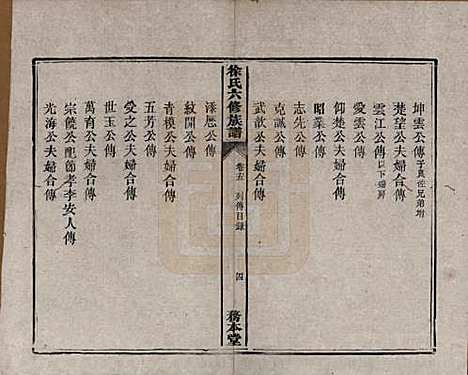 坤雲公傳子真佐兄弟附
楚望公夫婦合傳
雲江公傳以下婿房
愛雲公傳
仰楚公夫婦合傳
昭業公傳
志先公傳
克誠公傳
武歆公夫婦合傳
徐氏六修族譜
卷五 列傳目錄 四
務本堂
漆懸公傳
紋開公傳
青模公夫婦合傳
五芳公傳
愛之公夫婦合傳
世玉公傳
萬育公夫婦合傳
宗饒公配節孝李安人傳
光海公夫婦合傳